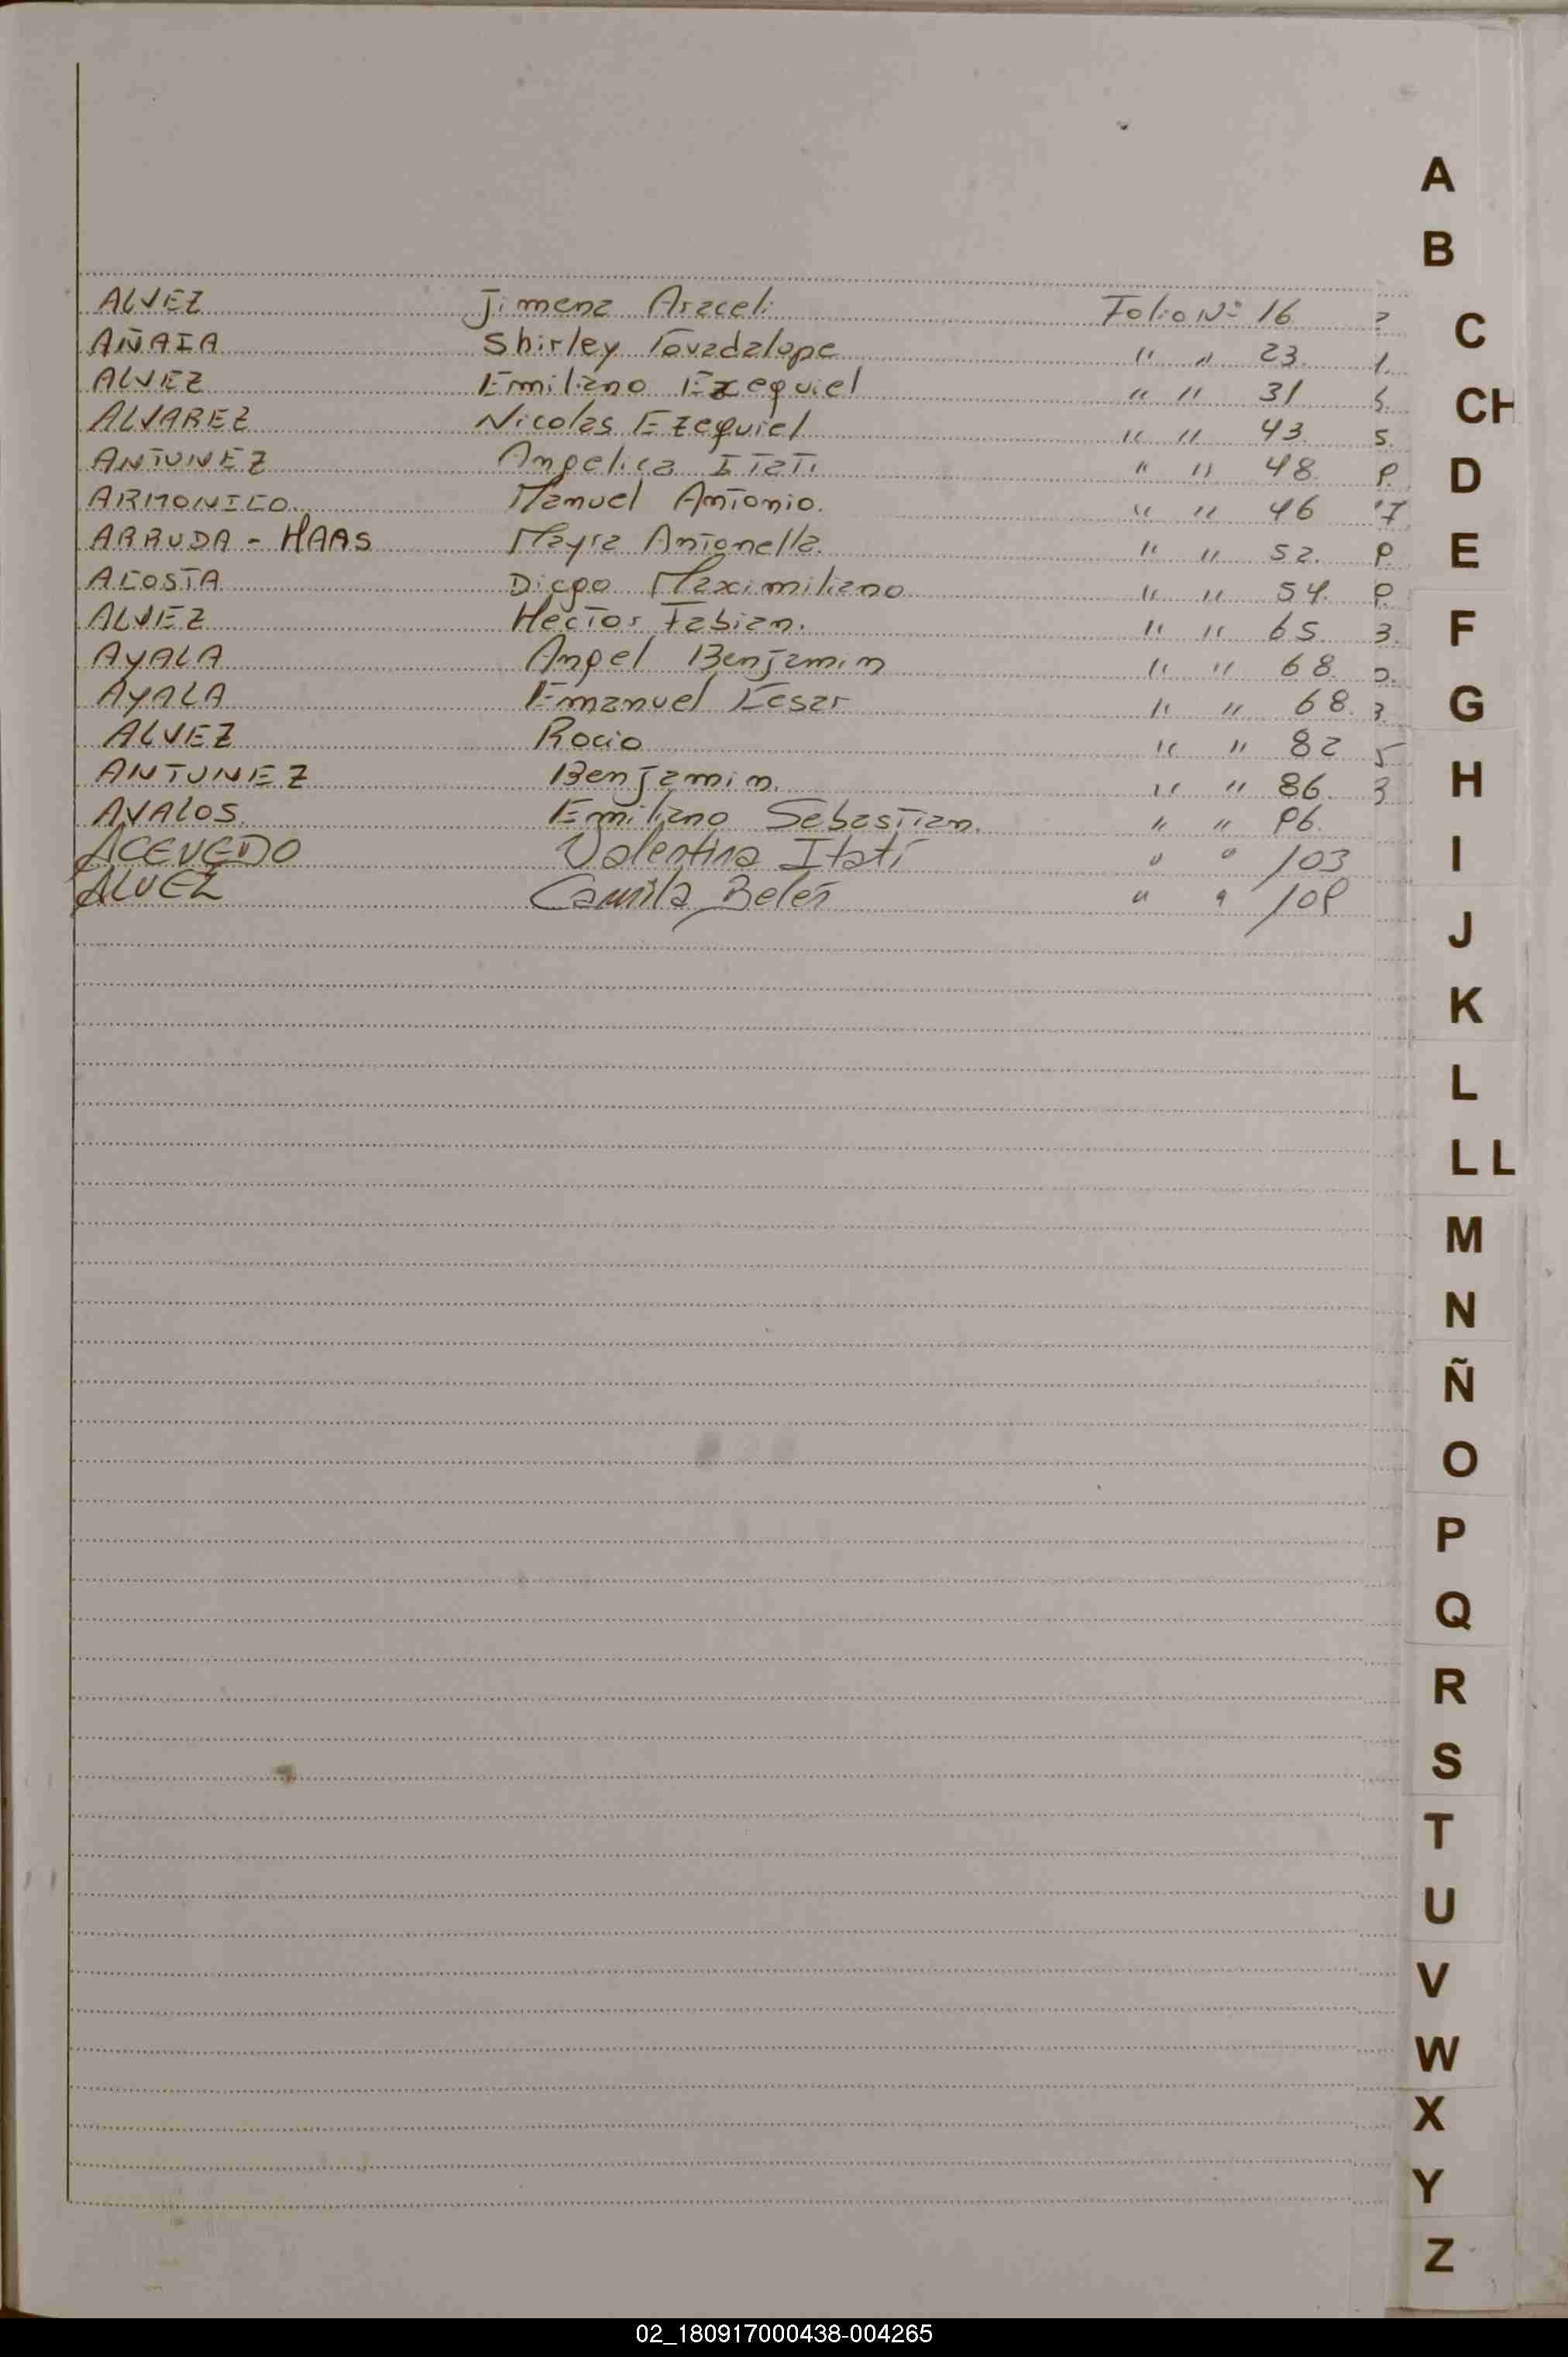 ALVEZ Jimena Araceli Folio Nº 16
AÑAIA Shirley Guadalupe " " 23
ALVEZ Emiliano Ezequiel " " 31
ALVAREZ Nicolas Ezequiel " " 43
ANTUNEZ Angelica Itati " " 48
ARMONICO Manuel Antonio. " " 46
ARRUDA - HAAS Mayra Antonella. " " 52.
ACOSTA Diego Maximiliano " " 54.
ALVEZ Hector Fabian. " " 65
AYALA Angel Benjamin " " 68
AYALA Emanuel Cesar " " 68.
ALVEZ Rocio " " 82
ANTUNEZ Benjamin. " " 86.
AVALOS. Emiliano Sebastian. " " 96.
ACEVEDO Valentina Itatí " " 103
ALVEZ Camila Belén " " 109
A
B
C
CH
D
E
F
G
H
I
J
K
L
LL
M
N
Ñ
O
P
Q
R
S
T
U
V
W
X
Y
Z
02_180917000438-004265